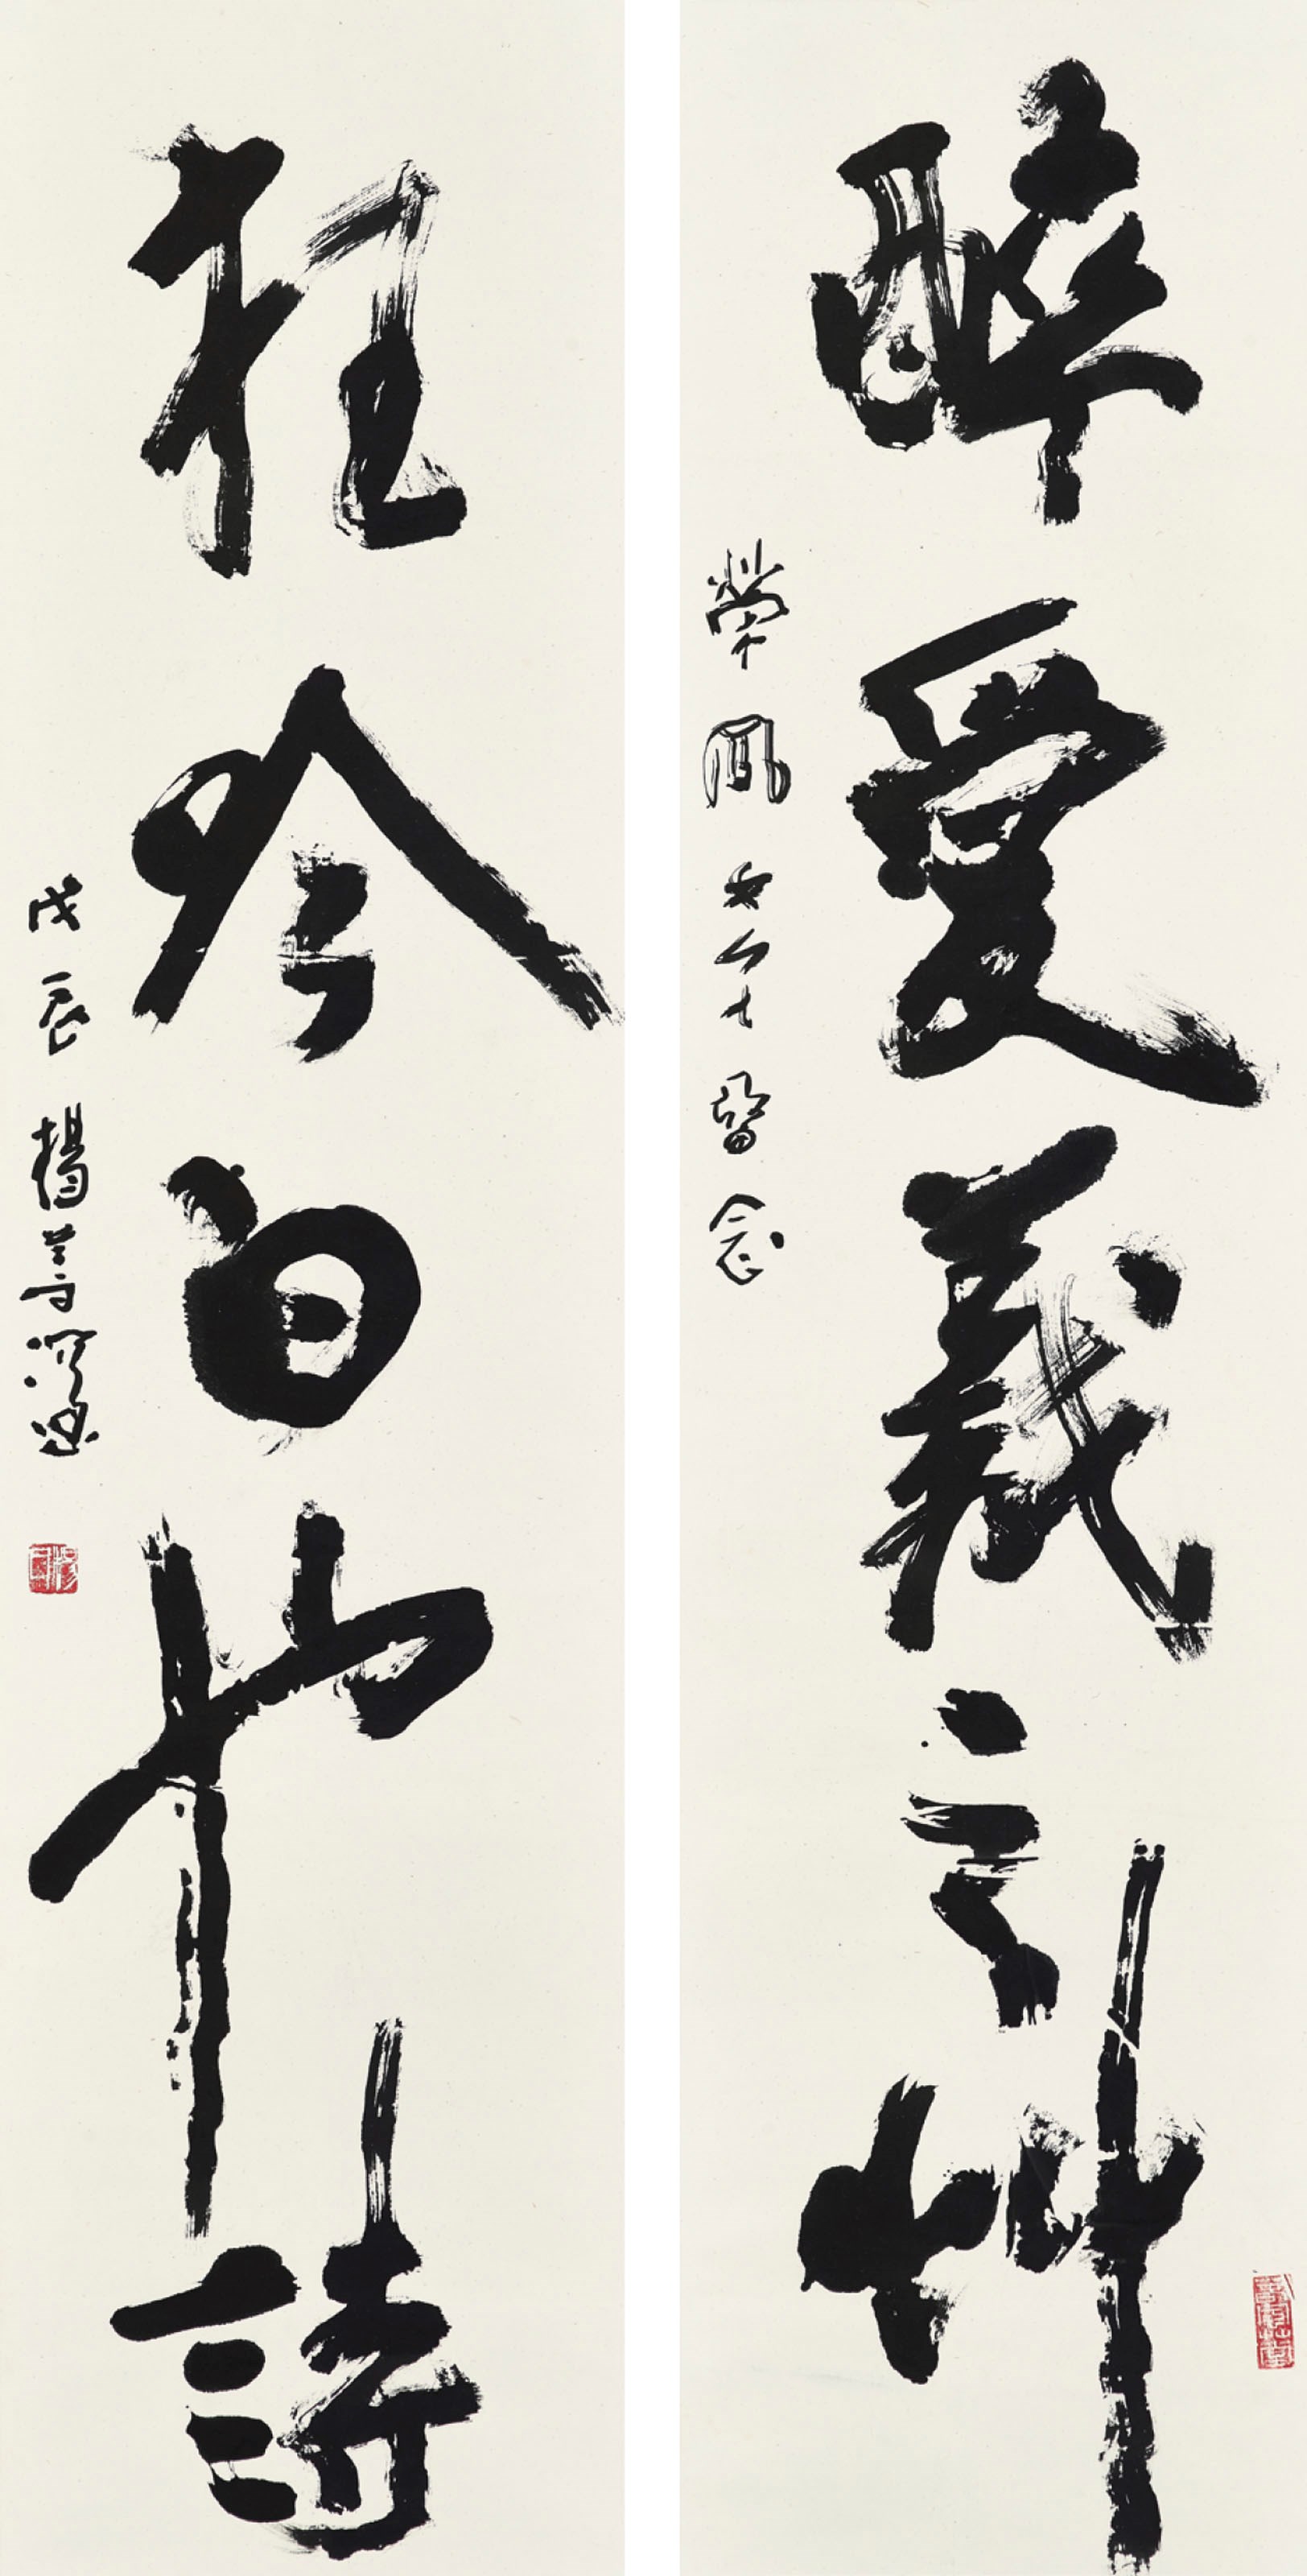 醉愛羲之艸
榮鳳女士留念
狂吟白也詩
戊辰楊善深題